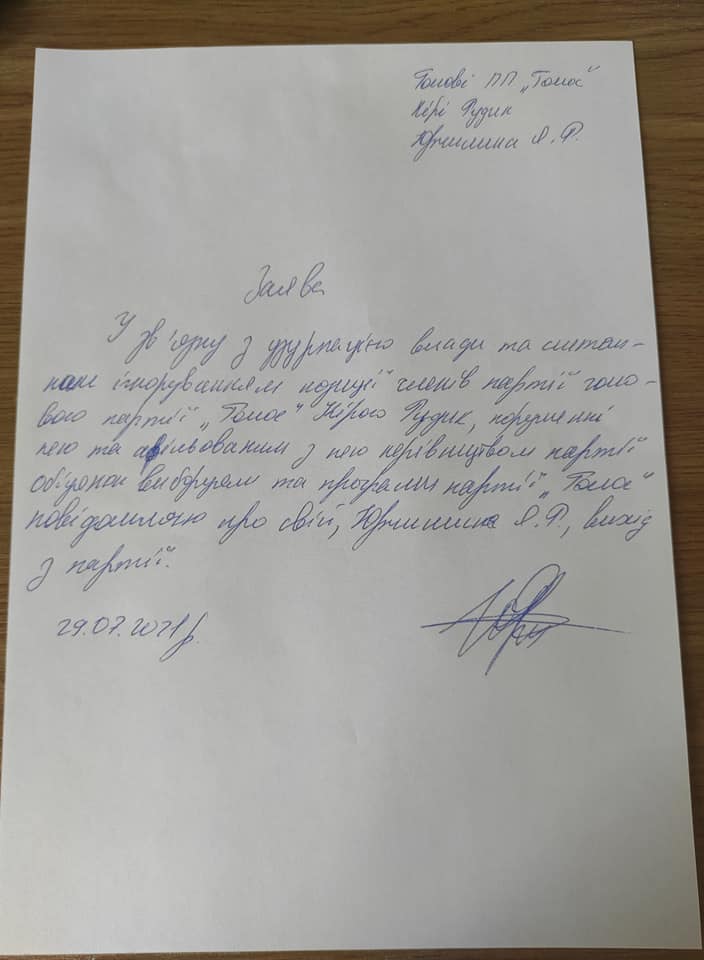 Голові ПП „Голос"
Кірі Рудик
Юрчишина Я.Р.
Заява
У зв'язку з узурпацією влади та систем-
ним ігноруванням позиції членів партії голо-
вою партії „Голос" Кірою Рудик, порушенні
нею та афільованим з нею керівництвом партії
обіцянок виборцям та програми партії „Голос"
повідомляю про свій, Юрчишина Я.Р., вихід
з партії.
29.07.2021р.